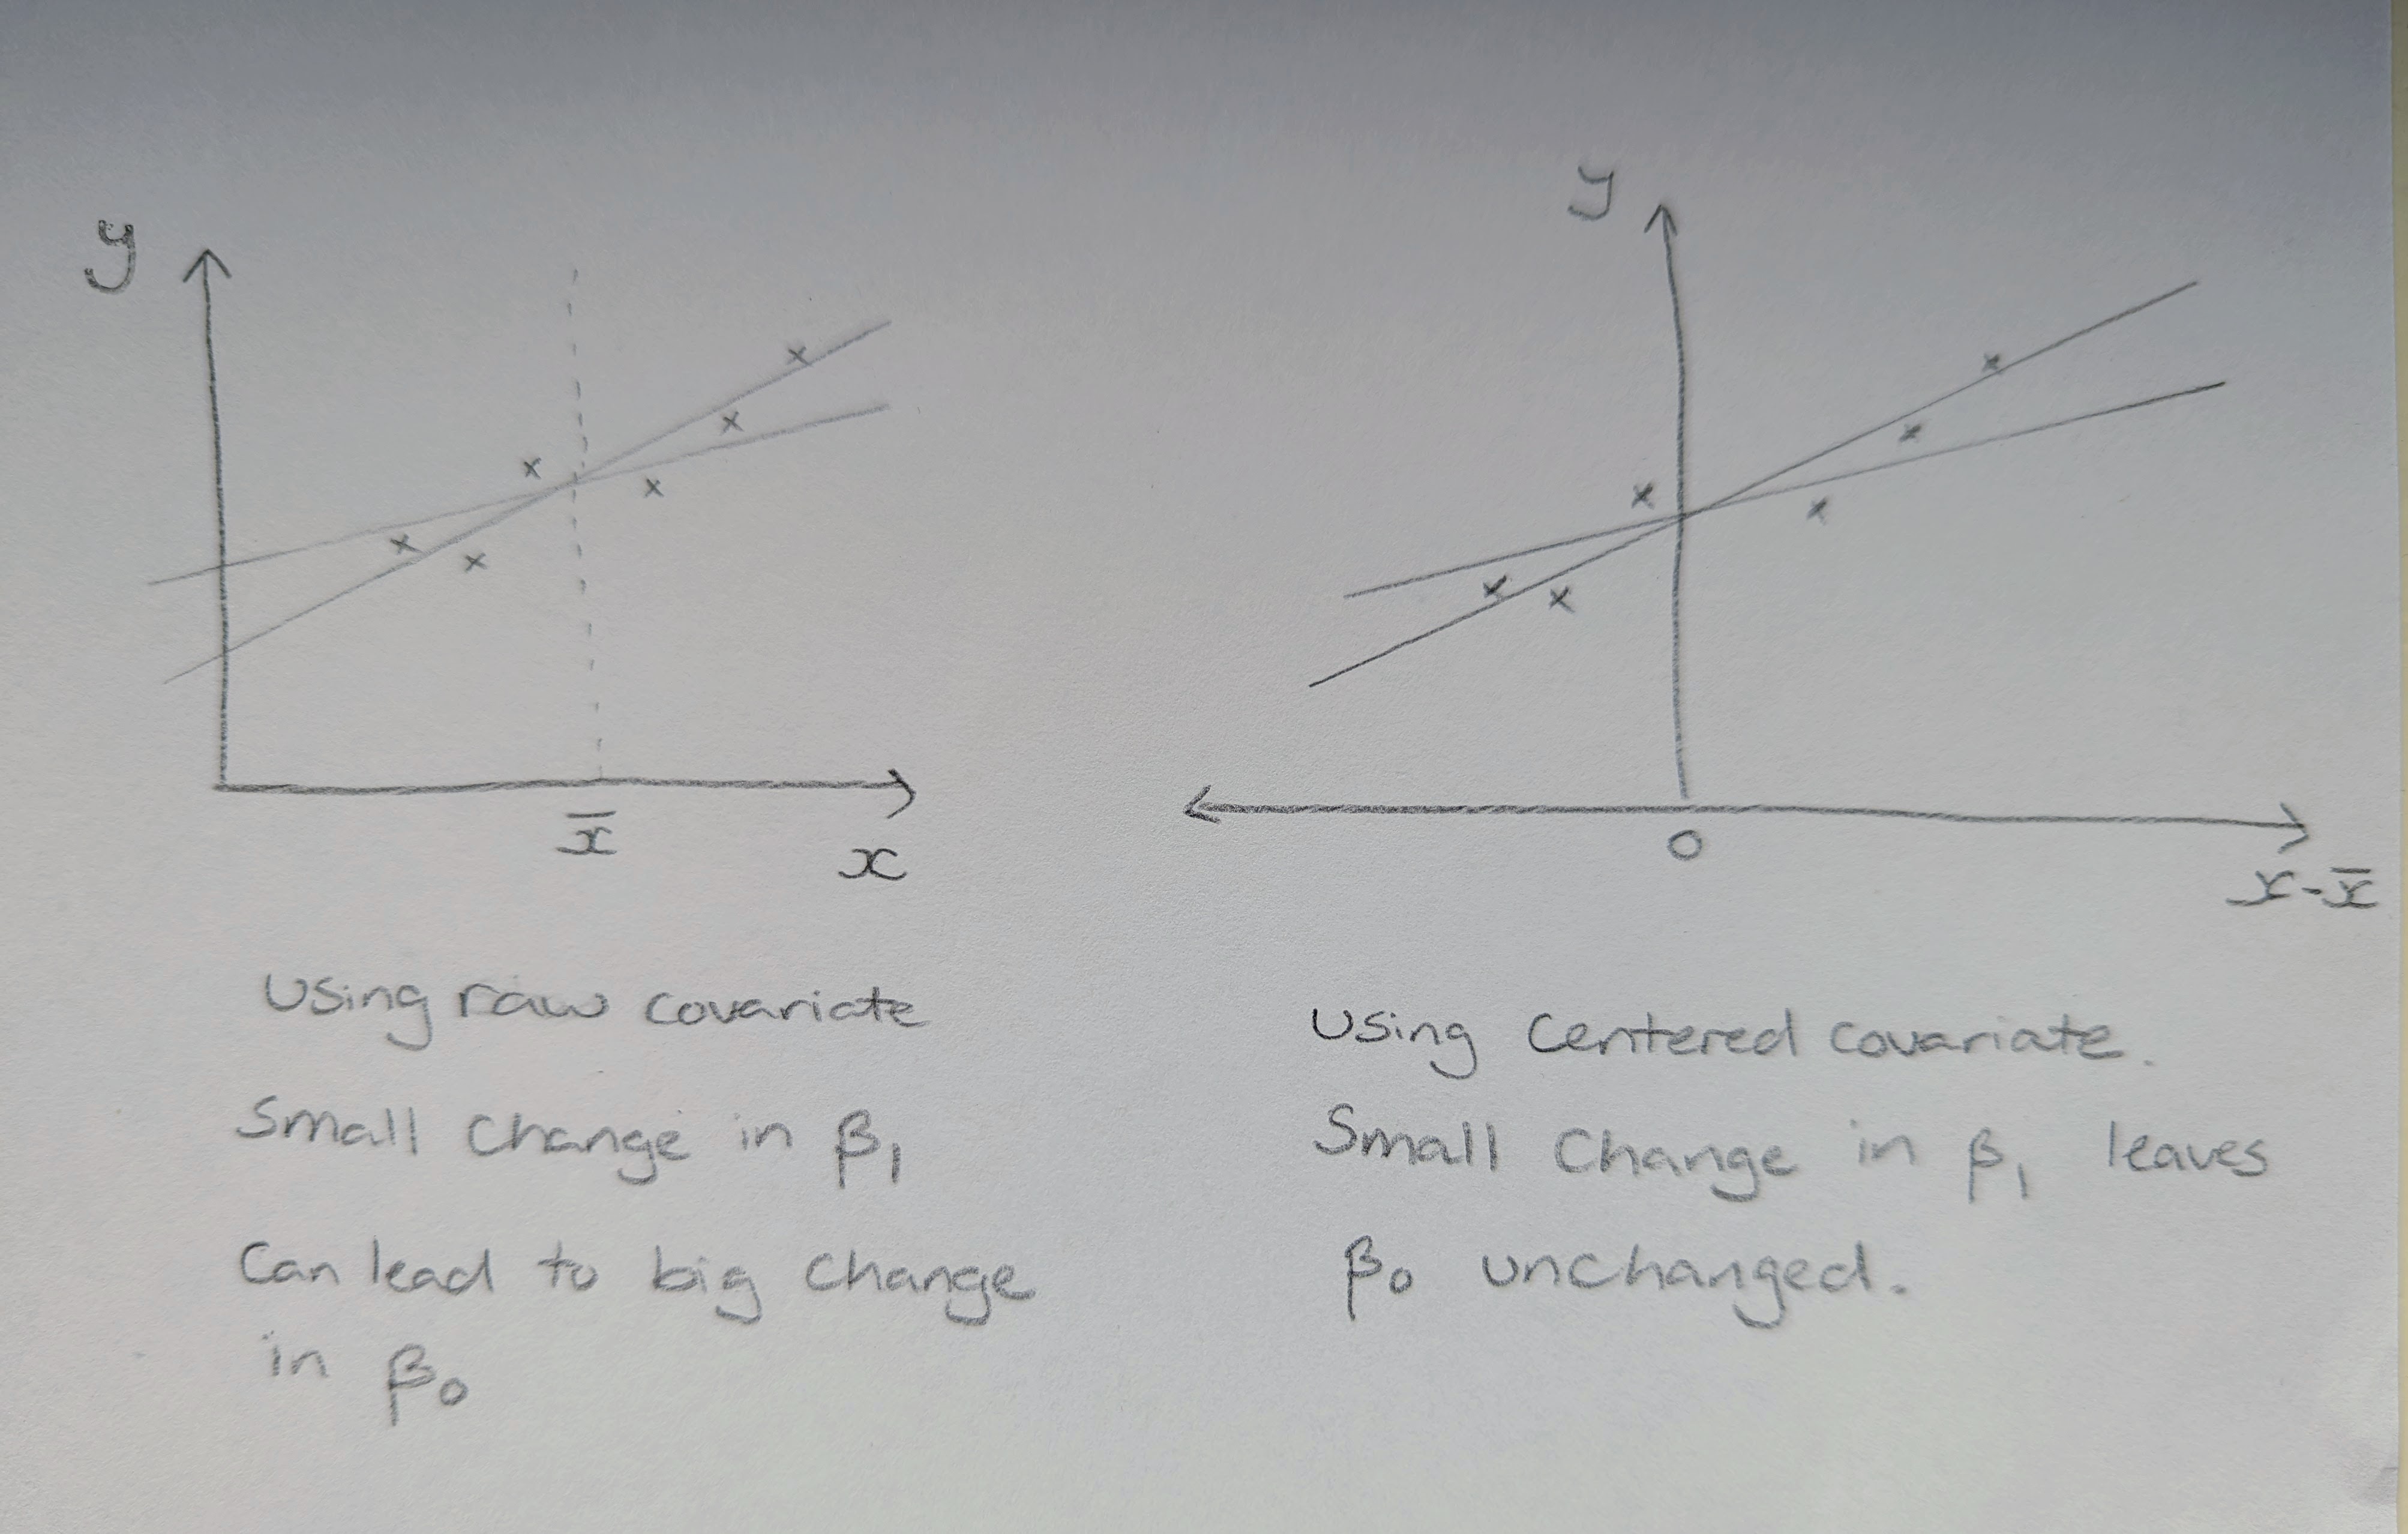 y
x̄
x
Using raw covariate
Small change in β₁
Can lead to big change
in β₀
y
0
x-x̄
Using Centered covariate.
Small Change in β₁ leaves
β₀ unchanged.